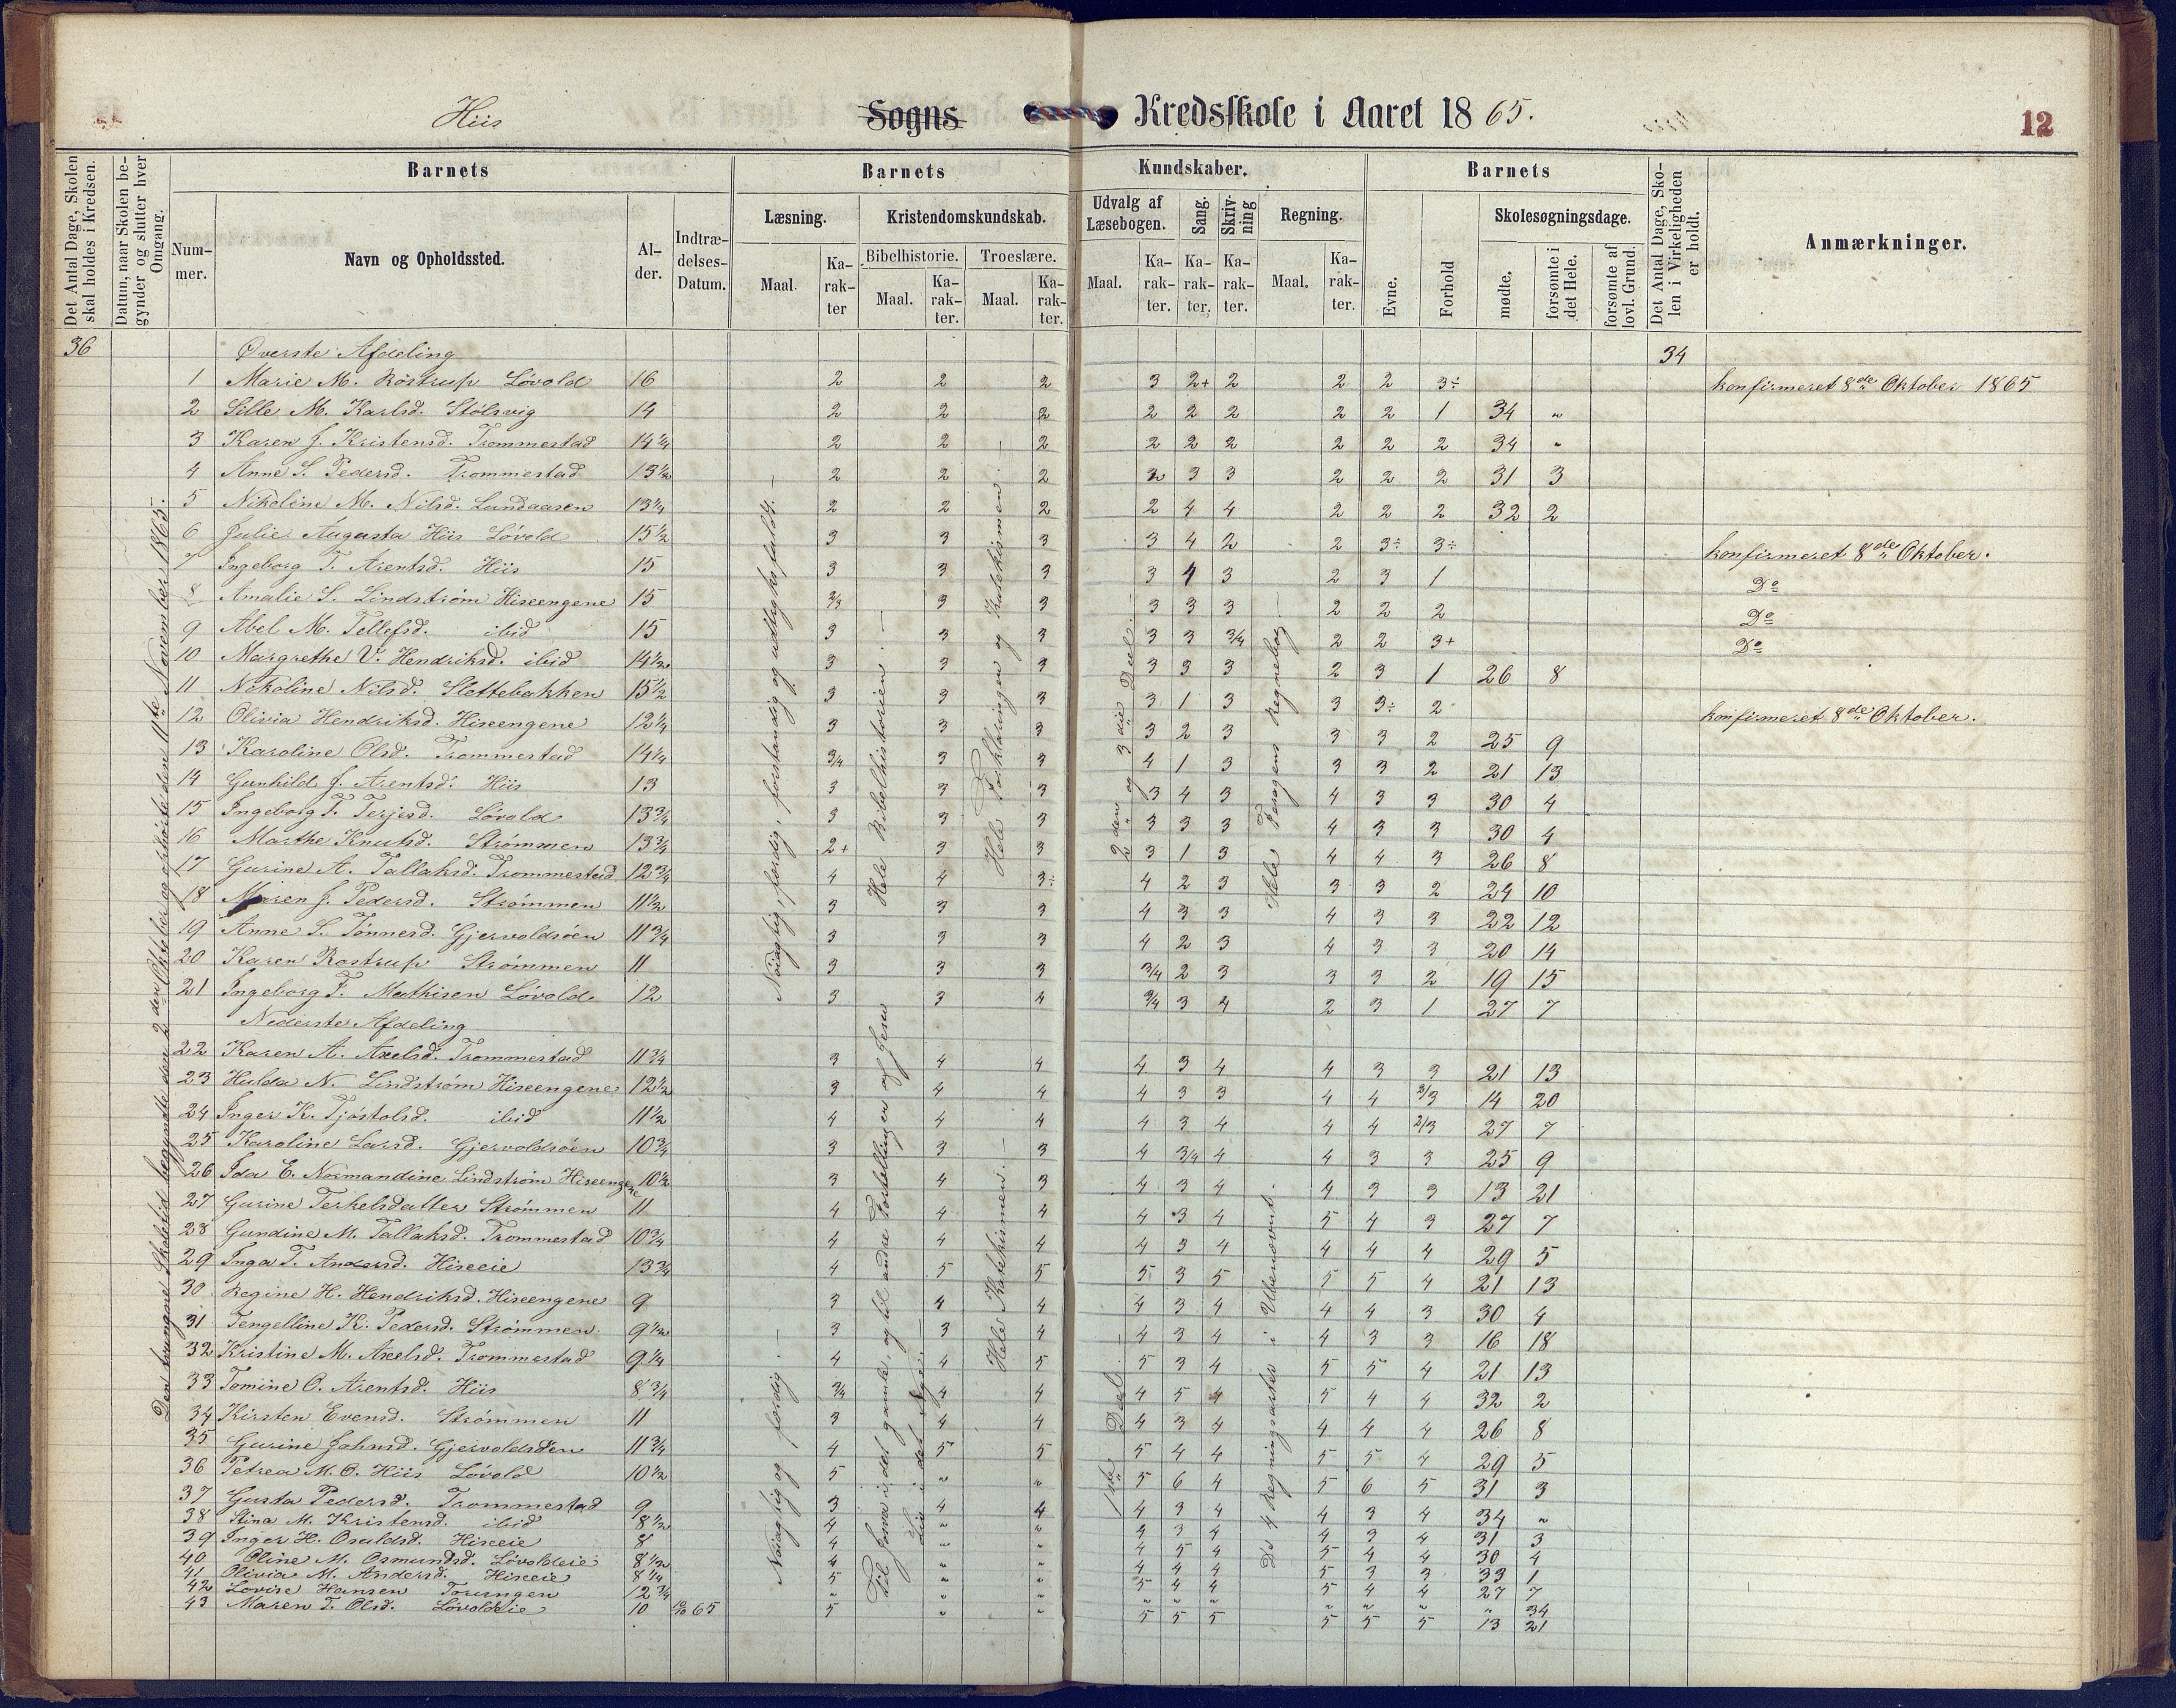 Hiis Sogns Kredsskole i Aaret 1865. 12
Det Antal Dage, Skolen skal holdes i Kredsen.
Datum, naar Skolen begynder og slutter hver Omgang.
Barnets
Nummer.
Navn og Opholdssted.
Alder.
Indtrædelses-Datum.
Barnets Kundskaber.
Læsning.
Maal.
Karakter
Kristendomskundskab.
Bibelhistorie.
Maal.
Karakter.
Troeslære.
Maal.
Karakter.
Udvalg af Læsebogen.
Maal.
Karakter.
Sang.
Karakter.
Skrivning
Karakter.
Regning.
Maal.
Karakter.
Barnets
Evne.
Forhold
Skolesøgningsdage.
mødte.
forsømte i det Hele.
forsømte af lovl. Grund.
Det Antal Dage, Skolen i Virkeligheden er holdt.
Anmærkninger.
36 Øverste Afdeling 34
1 Marie M. Röstrup Lövold 16 2 2 2 3 2+ 2 2 2 3÷ konfirmeret 8de Oktober 1865
2 Sille M. Karlsd. Stölsvig 14 2 2 2 2 2 2 2 2 1 34 "
3 Karen J. Kristensd. Trommestad 14 1/4 2 2 2 2 2 2 2 2 2 34 "
4 Anne S. Pedersd. Trommestad 13 1/2 2 2 2 3 3 2 2 2 31 3
5 Nikoline M. Nilsd. Lundaasen 13 1/4 2 2 2 2 4 4 2 2 2 32 2
6 Julie Augusta Hiis Lövold 15 1/2 3 3 3 3 4 2 2 3÷ 3÷ konfirmeret 8de Oktober.
7 Ingeborg T. Arentsd. Hiis 15 3 3 3 3 4 3 2 3 1 Do
8 Amalie S. Lindström Hiseengene 15 2/3 3 3 3 3 3 2 2 2 Do
9 Abel M. Tellefsd. ibid 15 3 3 3 3 3 3/4 2 2 3+ Do
10 Margrethe V. Hendriksd. ibid 14 1/2 3 3 3 3 3 3 2 3 1 26 8
11 Nikoline Nilsd. Slettebakken 15 1/2 3 3 3 3 1 3 3 3÷ 2 konfirmeret 8de Oktober.
12 Olivia Hendriksd. Hiseengene 12 1/4 3 3 3 3 2 3 3 3 2 25 9
13 Karoline Olsd. Trommestad 14 1/4 3/4 3 3 4 1 3 3 3 2 21 13
14 Gunhild J. Arentsd. Hiis 13 3 3 3 3 4 3 4 3 3 30 4
15 Ingeborg T. Terjesd. Lövold 13 3/4 3 3 3 3 3 3 4 3 3 30 4
16 Marthe Knutsd. Strömmen 13 3/4 2+ 3 3 3 1 3 4 4 3 26 8
17 Gurine A. Tallaksd. Trommestad 12 3/4 4 4 3÷ 4 2 3 3 3 2 24 10
18 Maren J. Pedersd. Strömmen 11 1/2 3 3 3 4 3 3 4 3 3 22 12
19 Anne S. Tönnesd. Gjervoldsöen 11 3/4 3 3 3 4 2 3 4 3 3 20 14
20 Karen Rostrup Strömmen 11 3 3 3 3/4 2 3 3 3 2 19 15
21 Ingeborg F. Mathisen Lövold 12 3 3 4 3/4 3 4 2 3 1 27 7
Nederste Afdeling
22 Karen A. Axelsd. Trommestad 11 3/4 3 4 4 4 3 4 4 3 3 21 13
23 Hulda N. Lindström Hiseengene 12 1/2 3 4 4 4 3 3 4 4 2/3 14 20
24 Inger K. Tjöstolsd. ibid 11 1/2 4 4 4 4 3 4 4 4 2/3 27 7
25 Karoline Larsd. Gjervoldsöen 10 3/4 3 3 3 4 3/4 4 4 3 3 25 9
26 Ida E. Normandine Lindström Hiseengene 10 1/2 3 4 3 4 3 4 4 3 3 13 21
27 Gurine Terkelsdatter Strömmen 11 4 4 4 4 3 4 5 4 3 27 7
28 Gundine M. Tallaksd. Trommestad 10 3/4 4 4 4 4 3 4 4 4 4 29 5
29 Inga T. Andersd. Hiseeie 13 3/4 4 5 5 5 3 5 5 5 4 21 13
30 Regine H. Hendriksd. Hiseengene 9 3 4 4 4 3 4 4 4 3 30 4
31 Tengelline K. Pedersd. Strömmen 9 1/2 3 3 4 4 3 4 4 3 3 16 18
32 Kristine M. Axelsd. Trommestad 9 1/4 4 4 5 5 3 4 5 5 4 21 13
33 Tomine O. Arentsd. Hiis 8 3/4 3/4 4 4 4 5 4 5 4 4 32 2
34 Kirsten Evensd. Strömmen 11 3 4 4 4 3 4 4 4 4 26 8
35 Gurine Johnsd. Gjervoldsöen 11 3/4 4 5 5 5 4 4 5 5 4 29 5
36 Petrea M. O. Hiis Lövold 10 1/2 5 " " 5 6 4 5 6 5 31 3
37 Gusta Pedersd. Trommestad 9 3 4 4 4 3 4 4 3 4 34 "
38 Stina M. Kristensd. ibid 8 1/2 4 " " 4 3 4 4 3 4 31 3
39 Inger H. Osuldsd. Hiseeie 8 4 " " 4 5 4 5 4 4 30 4
40 Oline M. Osmundsd. Lövoldeie 8 1/2 4 " " 4 4 4 5 3 3 33 1
41 Olivia M. Andersd. Hiseeie 8 1/4 5 " " 5 4 4 5 4 4 27 7
42 Lovise Hansen Torungen 12 3/4 " " " " " " " " " " 34
43 Maren T. Olsd. Lövoldeie 10 65 5 " " 5 5 5 5 5 5 13 21
Den tvungne Skoletid begyndte den 2den Oktober og ophörte den 11te November 1865.
Nöiagtig, færdig, forstandig og udtryksfuldt. –
Hele Bibelhistorien. –
Hele Forklaringen og Katekismen. –
2den og 3die Deel. –
Hele Pesagens Regnebog –
Nöiagtig og færdig. –
Til Josva i det gamle, og til andre Fortællinger af Jesu Liv i det Nye. –
Hele Katekismen. –
1ste Deel. –
De 4 Regningsarter i Ubenævnt.